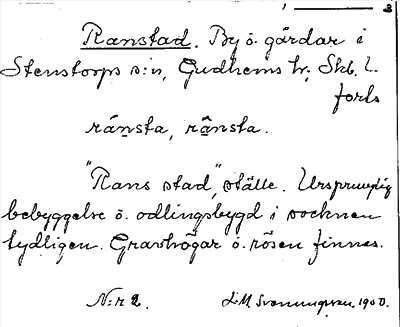 Ranstad. By ö. gårdar i
Stenstorps s:n, Gudhems hr, Skb. l.
forts
ránsta, rânsta.
"Rans stad", ställe. Ursprunglig
bebyggelse ö. odlingsbygd i socknen
tydligen. Gravhögar ö. rösen finnes.
N:r 2. 1900.